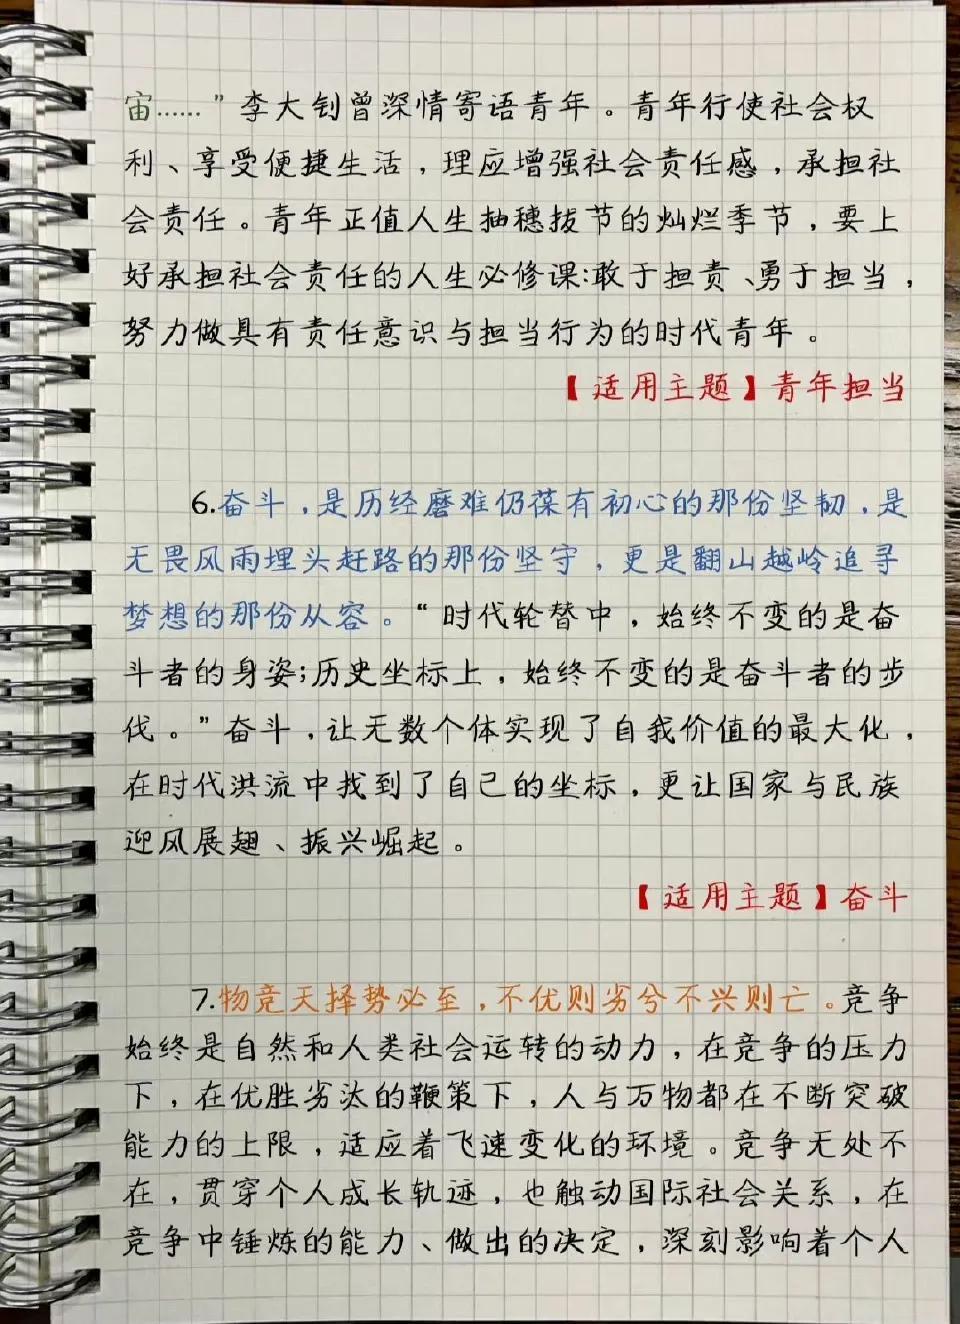 宙……”李大钊曾深情寄语青年。青年行使社会权
利、享受便捷生活，理应增强社会责任感，承担社
会责任。青年正值人生抽穗拔节的灿烂季节，要上
好承担社会责任的人生必修课:敢于担责、勇于担当，
努力做具有责任意识与担当行为的时代青年。
【适用主题】青年担当
6.奋斗，是历经磨难仍葆有初心的那份坚韧，是
无畏风雨埋头赶路的那份坚守，更是翻山越岭追寻
梦想的那份从容。“时代轮替中，始终不变的是奋
斗者的身姿;历史坐标上，始终不变的是奋斗者的步
伐。”奋斗，让无数个体实现了自我价值的最大化，
在时代洪流中找到了自己的坐标，更让国家与民族
迎风展翅、振兴崛起。
【适用主题】奋斗
7.物竞天择势必至，不优则劣兮不兴则亡。竞争
始终是自然和人类社会运转的动力，在竞争的压力
下，在优胜劣汰的鞭策下，人与万物都在不断突破
能力的上限，适应着飞速变化的环境。竞争无处不
在，贯穿个人成长轨迹，也触动国际社会关系，在
竞争中锤炼的能力、做出的决定，深刻影响着个人